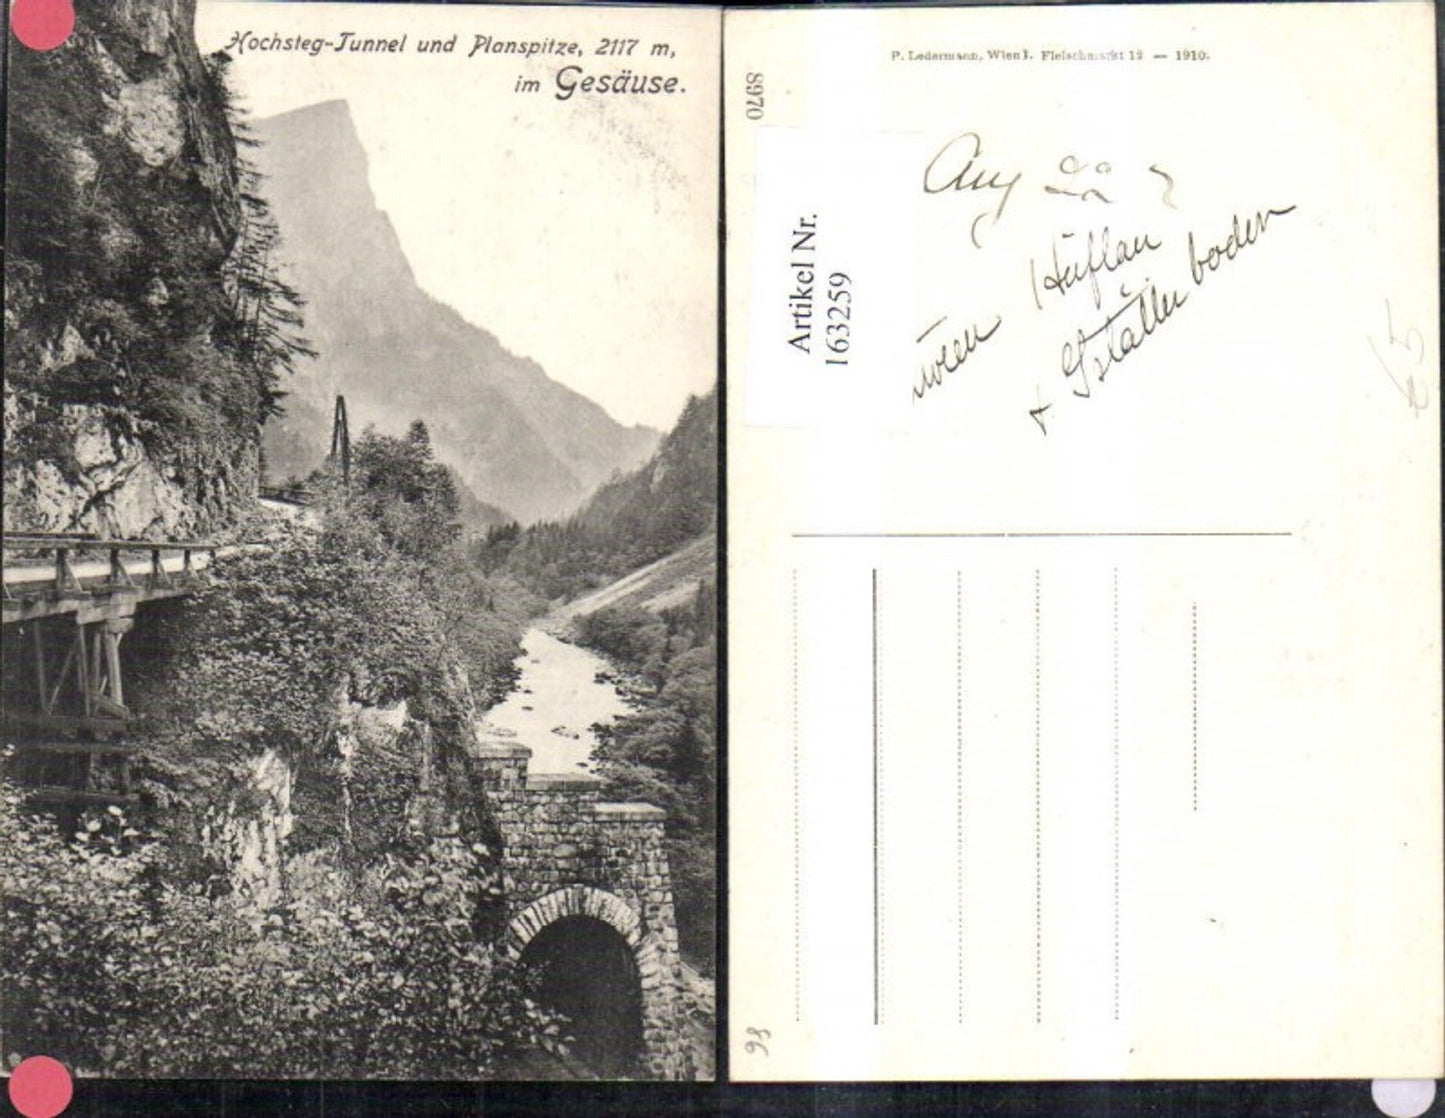 Hochsteg-Tunnel und Planspitze, 2117 m,
im Gesäuse.
P. Ledermann, Wien I. Fleischmarkt 12 — 1910.
8970
Artikel Nr.
163259
boden
€5
98